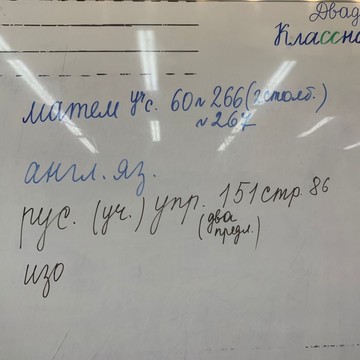 Двад
Классно
матем уч с. 60 № 266 (2 столб.)
№ 267
англ. яз.
рус. (уч.) упр. 151 стр. 86
(два предл.)
изо